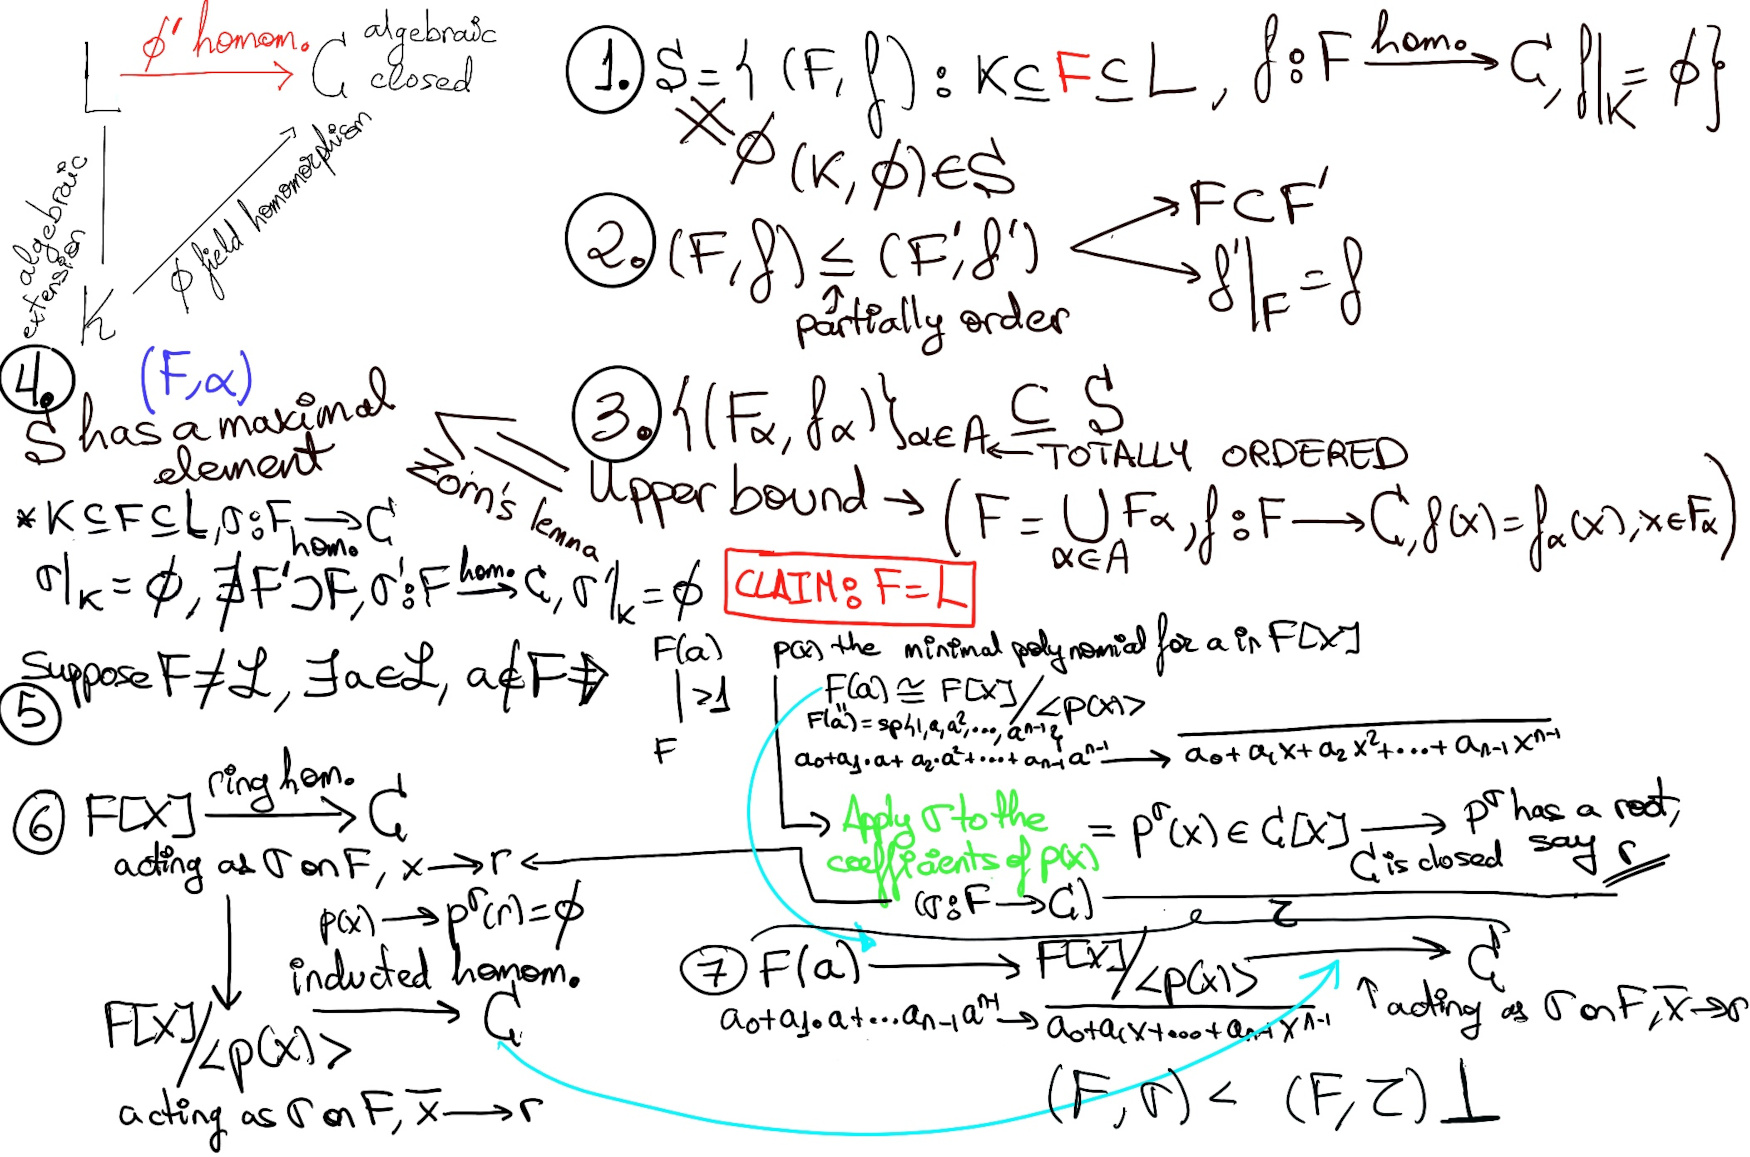 L ϕ' homom. C algebraic closed
algebraic extension
ϕ field homomorphism
K
1. S = { (F, f) : K ⊆ F ⊆ L, f : F —homo.→ C, f|_K = ϕ }
∦ ϕ (K, ϕ) ∈ S
2. (F, f) ≤ (F', f') F ⊂ F'
f'|_F = f
partially order
3. {(F_α, f_α)}_{α∈A} ⊆ S
← TOTALLY ORDERED
Upper bound → (F = ⋃_{α∈A} F_α, f : F → C, f(x) = f_α(x), x ∈ F_α)
Zorn's lemma
4. (F, α)
S has a maximal
element
* K ⊆ F ⊆ L, σ : F —homo.→ C
σ|_K = ϕ, ∄ F' ⊃ F, σ' : F —homo.→ C, σ'|_K = ϕ
CLAIM: F = L
5 Suppose F ≠ L, ∃ a ∈ L, a ∉ F ⇒
F(a)
| >1
F
p(x) the minimal polynomial for a in F[X]
F(a) ≅ F[X]/<p(x)>
F(a) = sp{1, a, a², ..., aⁿ⁻¹}
a₀+a₁.a+ a₂.a²+...+ aₙ₋₁aⁿ⁻¹ → a₀+ a₁x+ a₂x²+...+ aₙ₋₁xⁿ⁻¹
Apply σ to the
coefficients of p(x)
= p^σ(x) ∈ C[X] → p^σ has a root,
C is closed say r
(σ : F → C)
6 F[X] —ring hom.→ C
acting as σ on F, x → r
p(x) → p^σ(r) = ϕ
inducted homom.
F[X]/<p(x)> → C
acting as σ on F, x̄ → r
7 F(a) → F[X]/<p(x)> → C
τ
a₀+a₁.a+...aₙ₋₁aⁿ⁻¹ → a₀+a₁x+...+aₙ₋₁xⁿ⁻¹
↑ acting as σ on F, x̄ → r
(F, σ) < (F, τ) ⊥